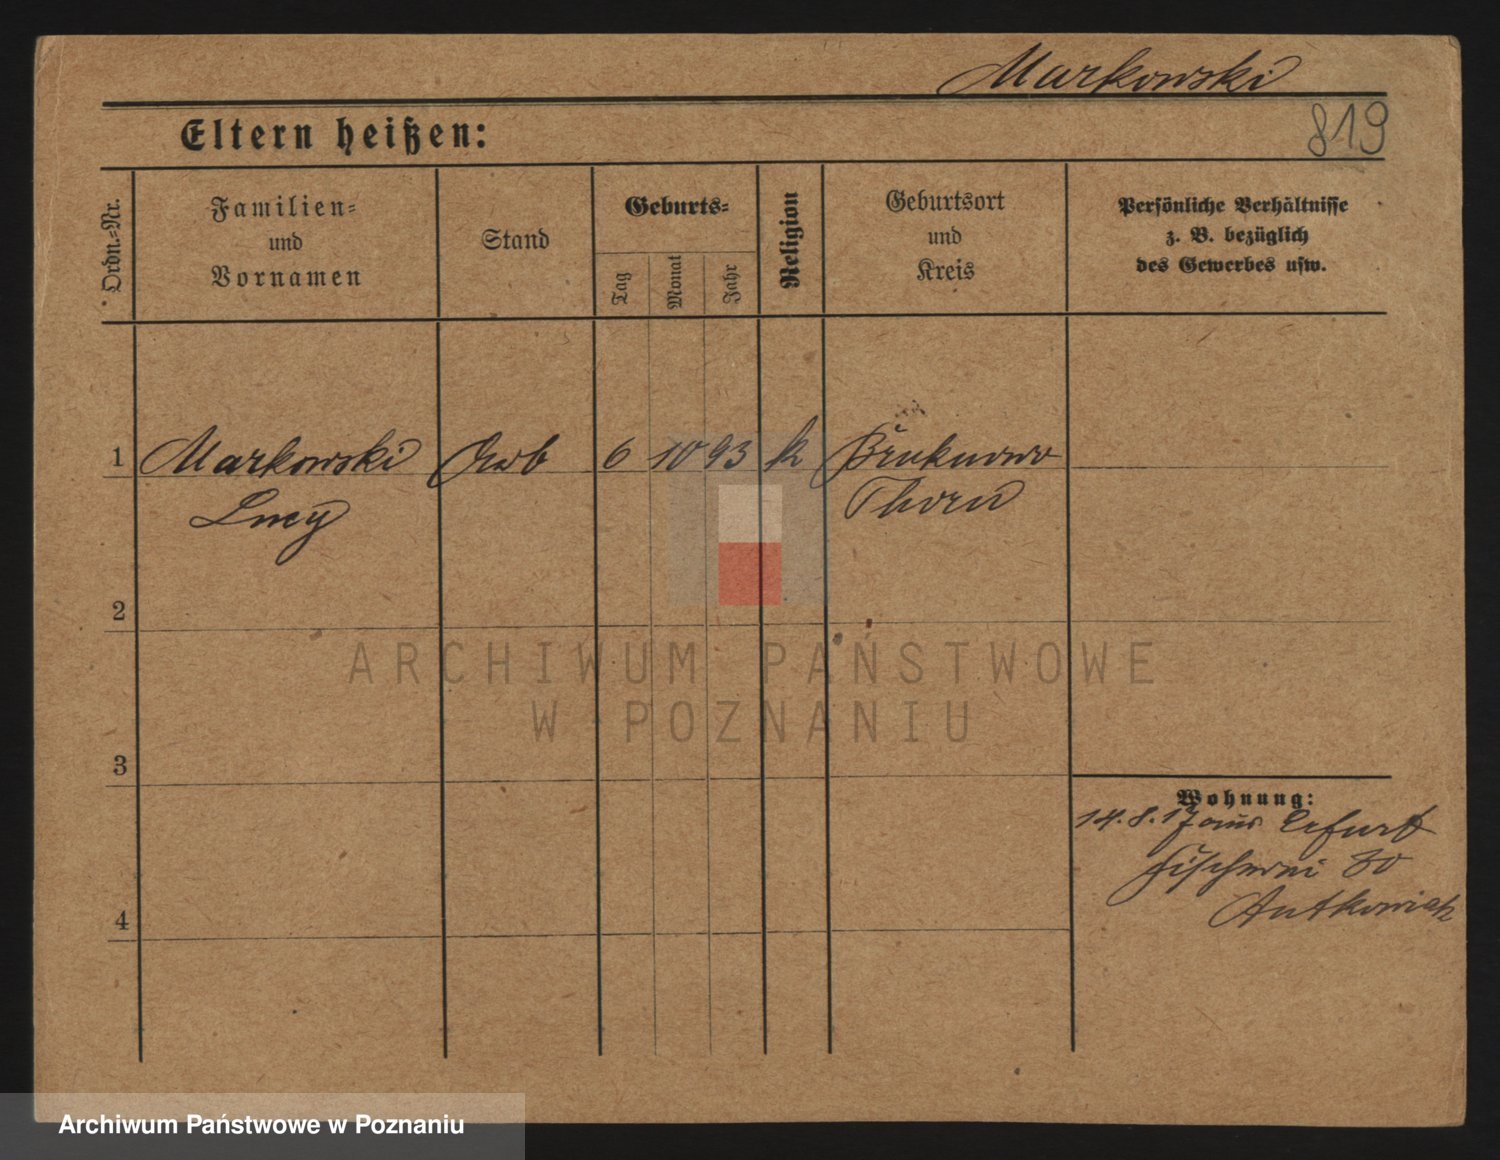 Markowski
819
Eltern heißen:
Ordn.=Nr.
Familien=
und
Vornamen
Stand
Geburts=
Tag
Monat
Jahr
Religion
Geburtsort
und
Kreis
Persönliche Verhältnisse
z. B. bezüglich
des Gewerbes usw.
1 Markowski Arb 6 10 93 k
Lucy Thorn
2
3
4
Wohnung:
14.8.17 aus Erfurt
Fischerei 30
Antkowiak
ARCHIWUM PAŃSTWOWE
W POZNANIU
Archiwum Państwowe w Poznaniu